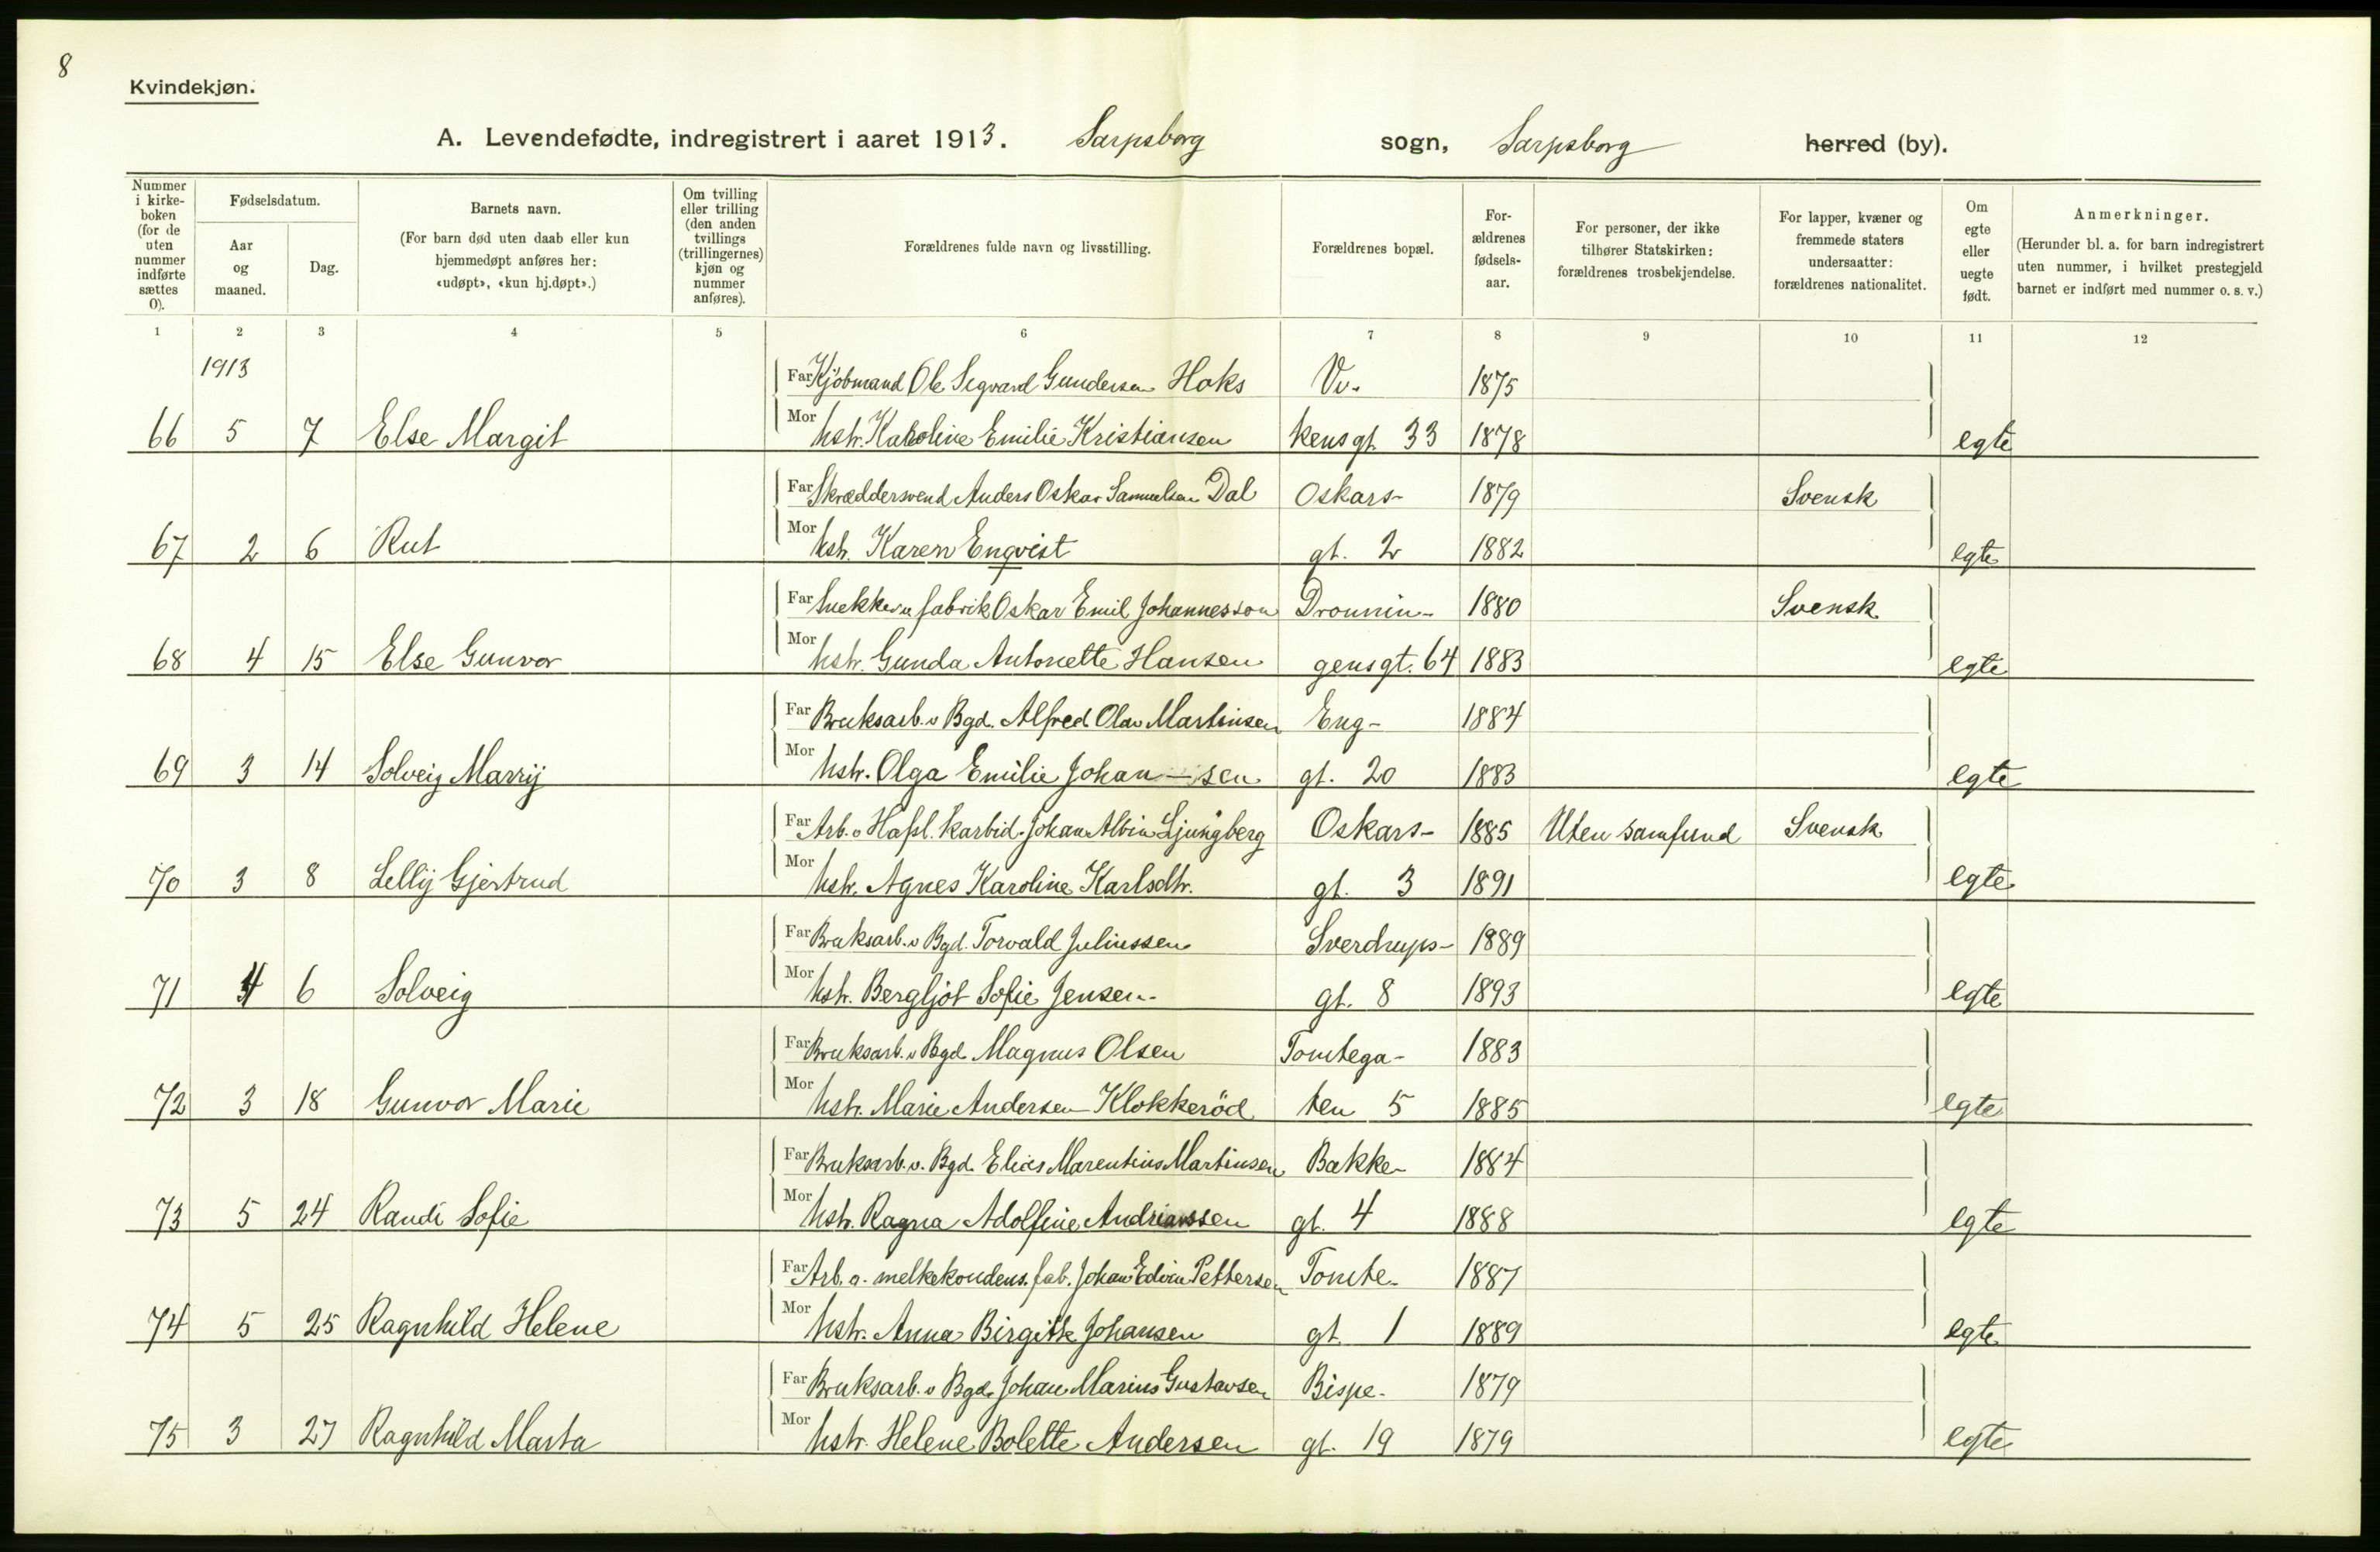 8
Kvindekjøn.
A. Levendefødte, indregistrert i aaret 1913. Sarpsborg sogn, Sarpsborg herred (by).
Nummer i kirke-boken (for de uten nummer indførte sættes 0).
Fødselsdatum.
Aar og maaned.
Dag.
Barnets navn.
(For barn død uten daab eller kun hjemmedøpt anføres her: «udøpt», «kun hj.døpt».)
Om tvilling eller trilling (den anden tvillings (trillingernes) kjøn og nummer anføres).
Forældrenes fulde navn og livsstilling.
Forældrenes bopæl.
For-ældrenes fødsels-aar.
For personer, der ikke tilhører Statskirken: forældrenes trosbekjendelse.
For lapper, kvæner og fremmede staters undersaatter: forældrenes nationalitet.
Om egte eller uegte født.
Anmerkninger.
(Herunder bl. a. for barn indregistrert uten nummer, i hvilket prestegjeld barnet er indført med nummer o. s. v.)
1 2 3 4 5 6 7 8 9 10 11 12
1913
Far Kjöbmand Ole Sigvard Gundersen Hoks Vi- 1875
66 5 7 Else Margit Mor hstr. Karoline Emilie Kristiansen kensgt. 33 1878 egte
Far Skræddersvend Anders Oskar Samuelsen Dal Oskars- 1879 Svensk
67 2 6 Rut Mor hstr. Karen Enqvist gt. 2 1882 egte
Far Snekker v fabrik Oskar Emil Johannesson Dronnin- 1880 Svensk
68 4 15 Else Gunvor Mor hstr. Gunda Antonette Hansen gensgt. 64 1883 egte
Far Bruksarb. v Bgd. Alfred Olav Martinsen Eng- 1884
69 3 14 Solveig Marrij Mor hstr. Olga Emilie Johan-sen gt. 20 1883 egte
Far Arb. v Hafsl. karbid. Johan Albin Ljungberg Oskars- 1885 Uten samfund Svensk
70 3 8 Lellij Gjertrud Mor hstr. Agnes Karoline Karlsdtr. gt. 3 1891 egte
Far Bruksarb. v Bgd. Torvald Juliussen Sverdrups- 1889
71 4 6 Solveig Mor hstr. Bergljot Sofie Jensen gt. 8 1893 egte
Far Bruksarb. v Bgd. Magnus Olsen Tomtega- 1883
72 3 18 Gunvor Marie Mor hstr. Marie Andersen Klokkeröd ten 5 1885 egte
Far Bruksarb. v. Bgd. Elias Marentius Martinsen Bakke- 1884
73 5 24 Randi Sofie Mor hstr. Ragna Adolfine Andreassen gt. 4 1888 egte
Far Arb. v. melkekondens. fab. Johan Edvin Pettersen Tomte- 1887
74 5 25 Ragnhild Helene Mor hstr. Anna Birgitte Johansen gt. 1 1889 egte
Far Bruksarb. v Bgd. Johan Marius Gustavsen Bispe- 1879
75 3 27 Ragnhild Marta Mor hstr. Helene Bolette Andersen gt. 19 1879 egte